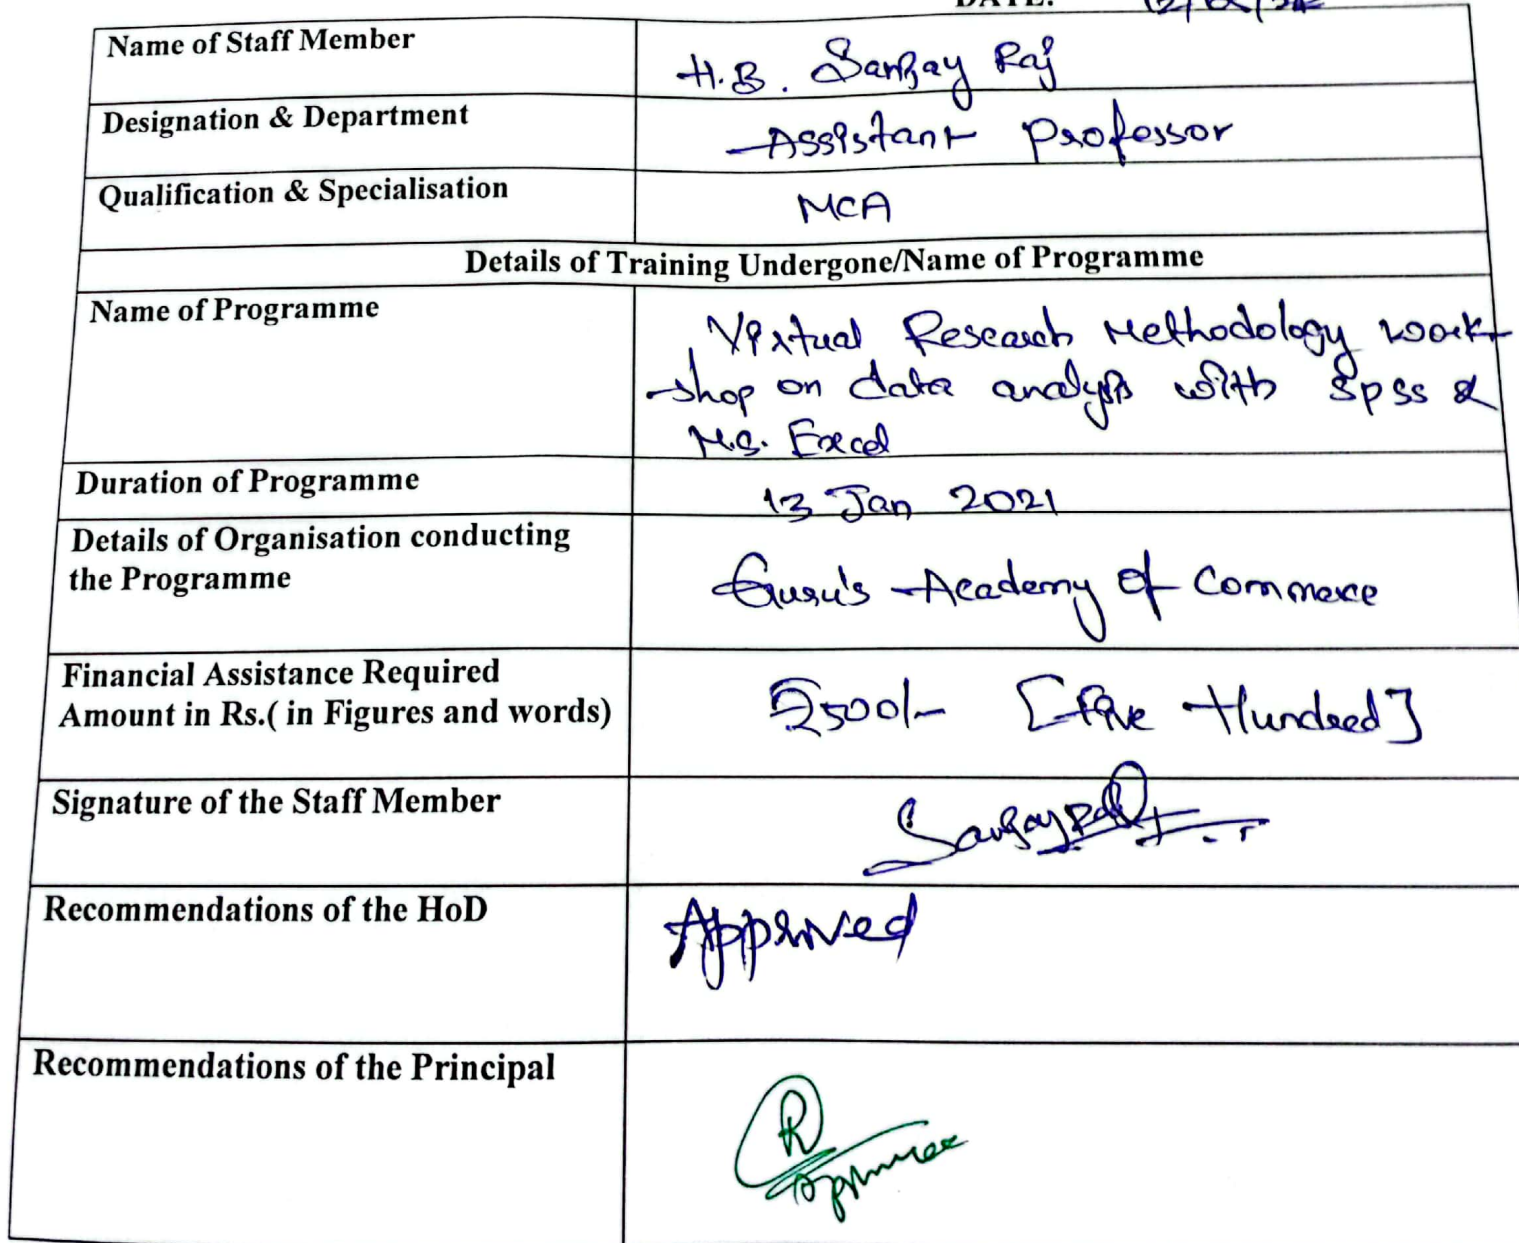 DATE:
Name of Staff Member
H.B. Sanjay Raj
Designation & Department
Assistant Professor
Qualification & Specialisation
MCA
Details of Training Undergone/Name of Programme
Name of Programme
Virtual Research Methodology work-
shop on data analysis with Spss &
M.S. Excel
Duration of Programme
13 Jan 2021
Details of Organisation conducting
the Programme
Guru's Academy of Commerce
Financial Assistance Required
Amount in Rs.( in Figures and words)
₹500/- [Five Hundred]
Signature of the Staff Member
Sanjay Raj
Recommendations of the HoD
Approved
Recommendations of the Principal
Approved